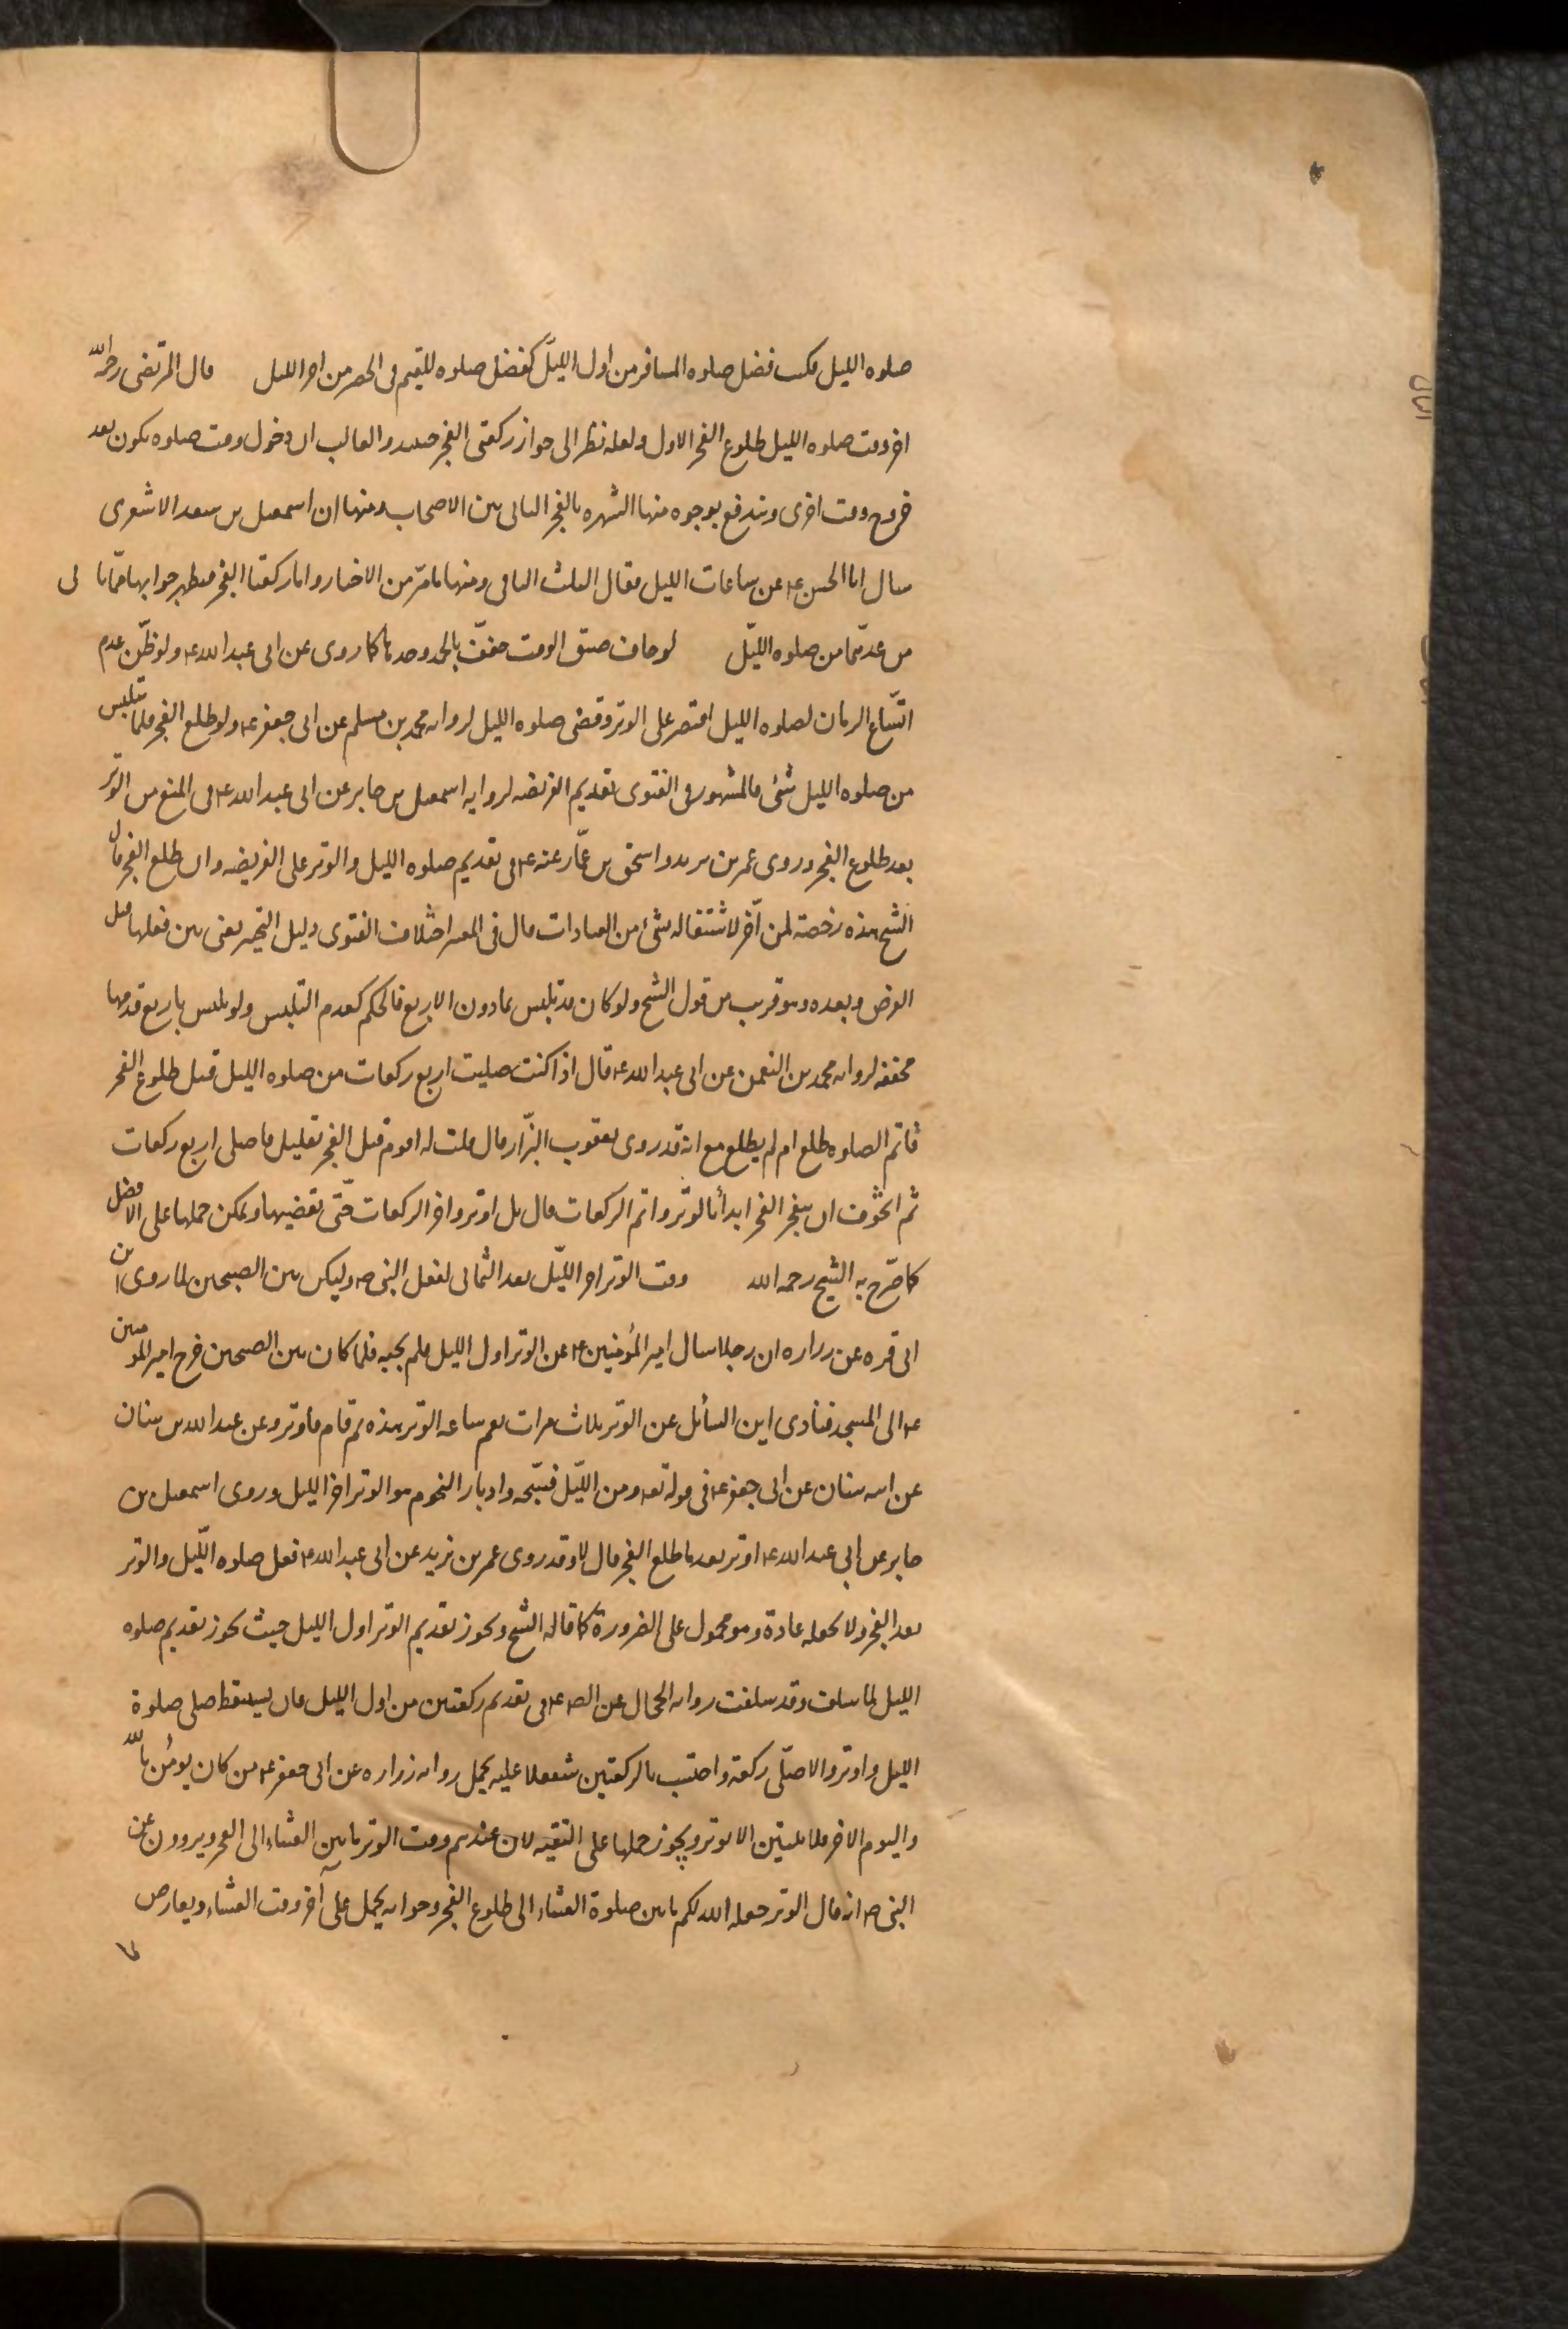 صلوه الليل فكتب فضل صلوه المسافر من اول الليل كفضل صلوه المقيم فى الحضر من اخر الليل قال المرتضى رحمه الله
اخر وقت صلوه الليل طلوع الفجر الاول ولعله نظر الى جواز ركعتى الفجر حينئذ والغالب ان دخول وقت صلوه يكون بعد
خروج وقت اخرى ويندفع بوجوه منها الشهره بالفجر الثانى بين الاصحاب ومنها ان اسمعيل بن سعد الاشعرى
سال ابا الحسن ع عن ساعات الليل فقال الثلث الباقى ومنها ما مرّ من الاخبار واما ركعتا الفجر فيظهر جوابها ممّا ياتى
من عدّهما من صلوه الليل لو خاف ضيق الوقت خفف بالحمد وحدها كما روى عن ابى عبد الله ع ولو ظنّ عدم
اتّساع الزمان لصلوه الليل اقتصر على الوتر وقضى صلوه الليل لروايه محمد بن مسلم عن ابى جعفر ع ولو طلع الفجر ولما يتلبس
من صلوه الليل بشئ فالمشهور فى الفتوى تقديم الفريضه لروايه اسمعيل بن جابر عن ابى عبد الله ع فى المنع من الوتر
بعد طلوع الفجر وروى عمر بن يزيد واسحق بن عمّار عنه ع فى تقديم صلوه الليل والوتر على الفريضه وان طلع الفجر قال
الشيخ هذه رخصة لمن اخّر لاشتغاله بشئ من العبادات قال فى المعتبر اختلاف الفتوى دليل التخيير يعنى بين فعلها قبل
الفرض وبعده وهو قريب من قول الشيخ ولو كان قد تلبس بما دون الاربع فالحكم كعدم التلبس ولو تلبس باربع قدمها
مخففه لروايه محمد بن النعمن عن ابى عبد الله ع قال اذا كنت صليت اربع ركعات من صلوه الليل قبل طلوع الفجر
فاتم الصلوه طلع ام لم يطلع مع انه قد روى يعقوب البزّاز قال قلت له اقوم قبل الفجر بقليل فاصلى اربع ركعات
ثم اتخّوف ان ينفجر الفجر ابدأ بالوتر واتم الركعات قال بل اوتر واخر الركعات حتّى تقضيها ويمكن حملها على الافضل
كما صّرح به الشيخ رحمه الله وقت الوتر اخر الليّل بعد الثمانى لفعل النبى ص وليكن بين الصبحين لما روى ابن
ابى قره عن زراره ان رجلا سال امير المؤمنين ع عن الوتر اول الليل فلم يجبه فلما كان بين الصبحين خرج امير المومنين
ع الى المسجد فنادى اين السائل عن الوتر ثلاث مرات نعم ساعه الوتر هذه ثم قام فاوتر وعن عبد الله بن سنان
عن ابيه سنان عن ابى جعفر ع فى قوله تعه ومن الليّل فسبّحه وادبار النجوم هو الوتر اخر الليل وروى اسمعيل بن
جابر عن ابى عبد الله ع اوتر بعد ما طلع الفجر قال لا وقد روى عمر بن يزيد عن ابى عبد الله ع فعل صلوه اللّيل والوتر
بعد الفجر ولا يجعله عادة وهو محمول على الضرورة كما قاله الشيخ ويجوز تقديم الوتر اول الليل حيث يجوز تقديم صلوه
الليل لما سلف وقد سلفت روايه الحجال عن الص ع فى تقديم ركعتين من اول الليل فان استيقظ صلى صلوة
الليل واوتر والا صلّى ركعة واحتسب بالركعتين شفعا وعليه يحمل روايه زراره عن ابى جعفر ع من كان يؤمن بالله
واليوم الاخر فلا يبيتن الا بوتر ويجوز حملها على التقيه لان عندهم وقت الوتر ما بين العشاء الى الفجر ويروون عن
النبى ص انه قال الوتر جعله الله لكم ما بين صلوة العشاء الى طلوع الفجر وجوابه يحمل على آخر وقت العشاء ويعارض